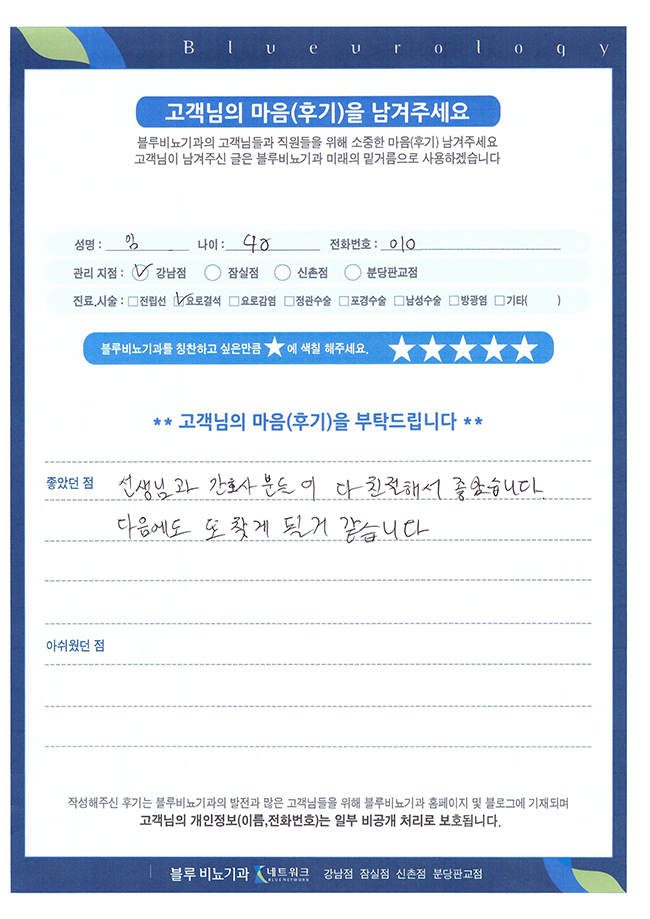 Blueurology
고객님의 마음(후기)을 남겨주세요
블루비뇨기과의 고객님들과 직원들을 위해 소중한 마음(후기) 남겨주세요
고객님이 남겨주신 글은 블루비뇨기과 미래의 밑거름으로 사용하겠습니다
성명 : 임 나이 : 40 전화번호 : 010
관리 지점 : 강남점 잠실점 신촌점 분당판교점
진료,시술 : 전립선 요로결석 요로감염 정관수술 포경수술 남성수술 방광염 기타( )
블루비뇨기과를 칭찬하고 싶은만큼 ★에 색칠 해주세요. ★★★★★
** 고객님의 마음(후기)을 부탁드립니다 **
좋았던 점 선생님과 간호사 분들이 다 친절해서 좋았습니다.
다음에도 또 찾게 될거 같습니다
아쉬웠던 점
작성해주신 후기는 블루비뇨기과의 발전과 많은 고객님들을 위해 블루비뇨기과 홈페이지 및 블로그에 기재되며
고객님의 개인정보(이름,전화번호)는 일부 비공개 처리로 보호됩니다.
블루 비뇨기과 네트워크 BLUE NETWORK 강남점 잠실점 신촌점 분당판교점